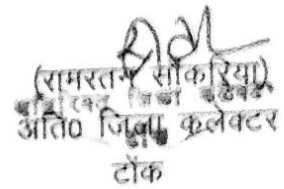 (रामरतन सौंकरिया)
अति० जिला कलेक्टर
टोंक